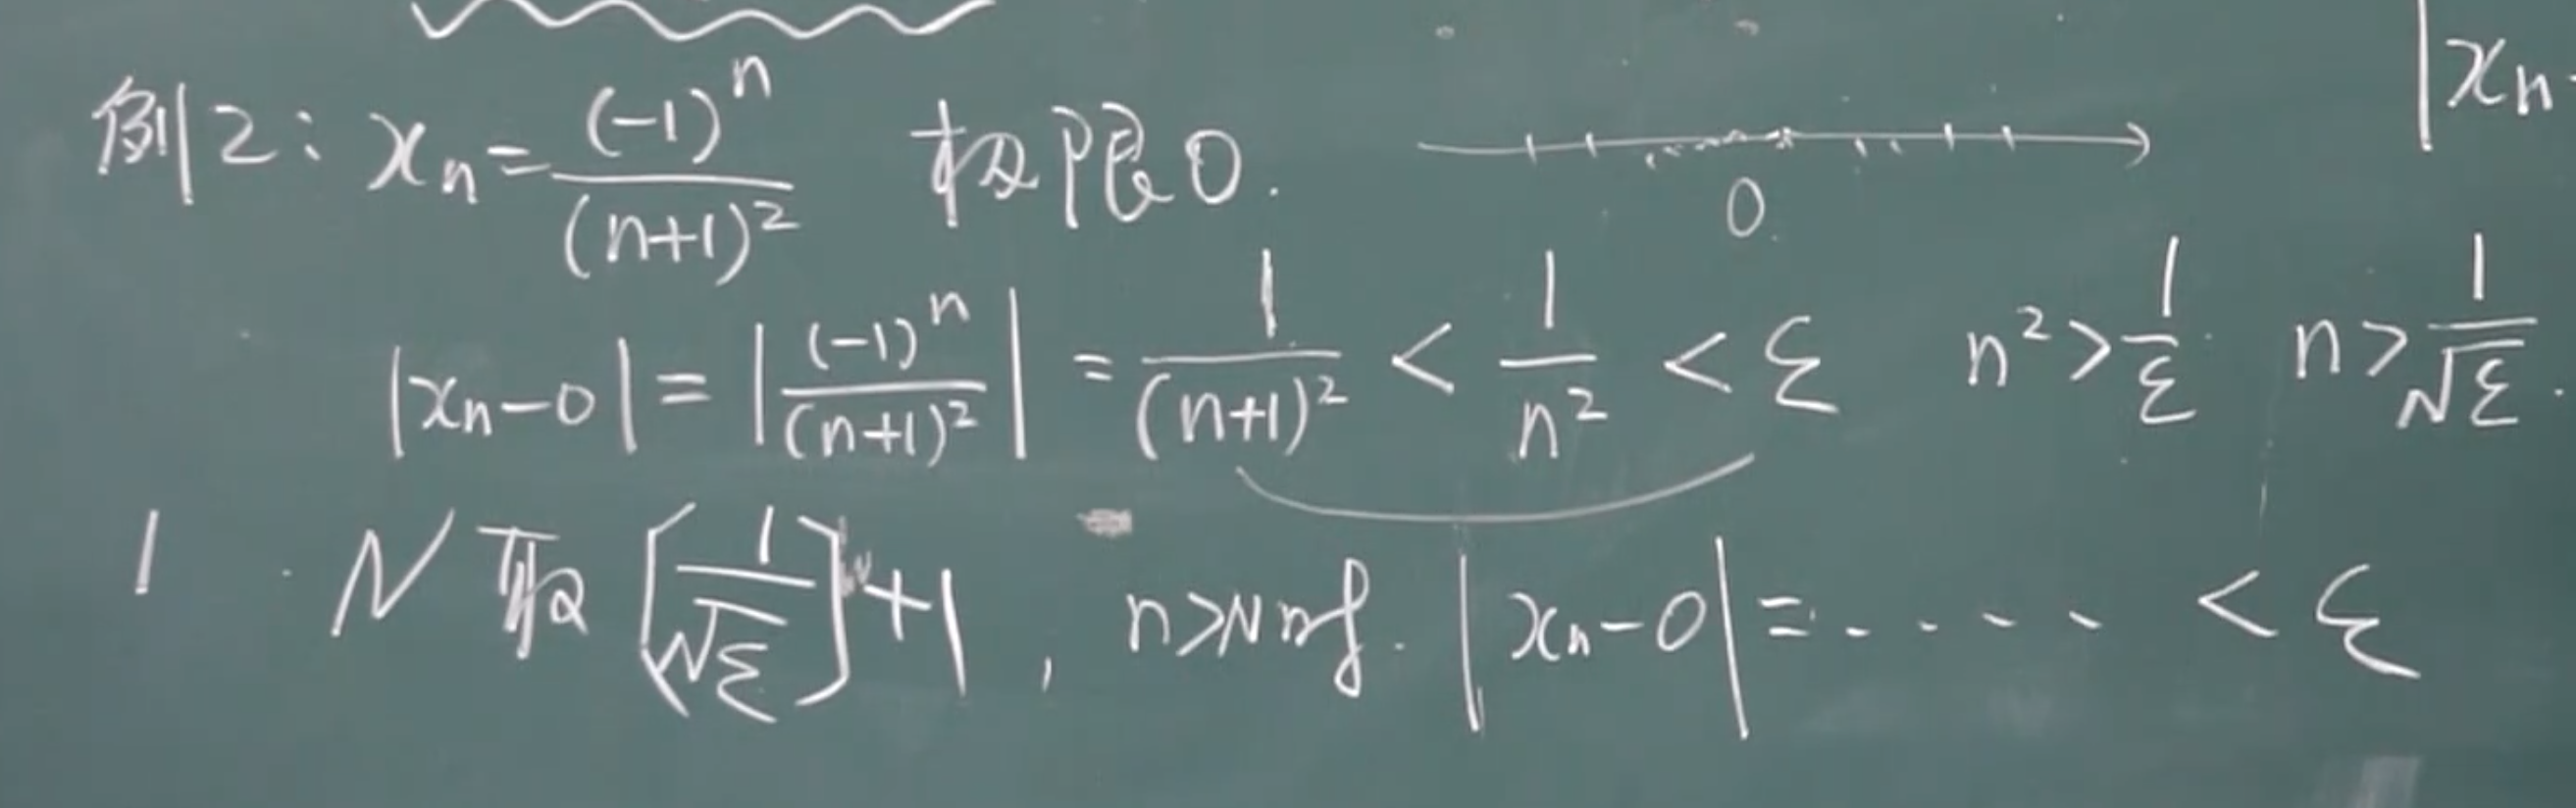 例2: xₙ = (-1)ⁿ/(n+1)² 极限0.
0
|xₙ
|xₙ-0| = |(-1)ⁿ/(n+1)²| = 1/(n+1)² < 1/n² < ε n² > 1/ε n > 1/√ε.
N 取 [1/√ε]+1, n>N时. |xₙ-0| = - - - - < ε